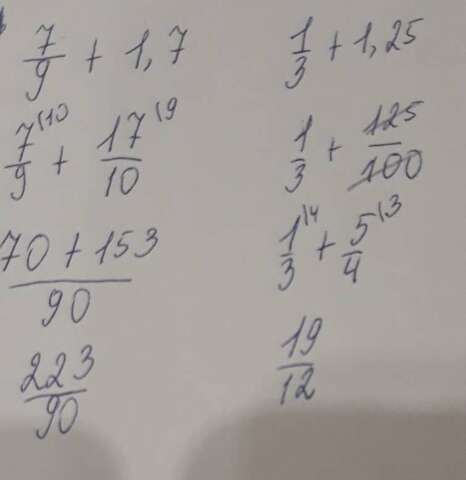 7/9 + 1,7
7/9\10 + 17/10\9
70 + 153/90
223/90
1/3 + 1,25
1/3 + 125/100
1/3\4 + 5/4\3
19/12